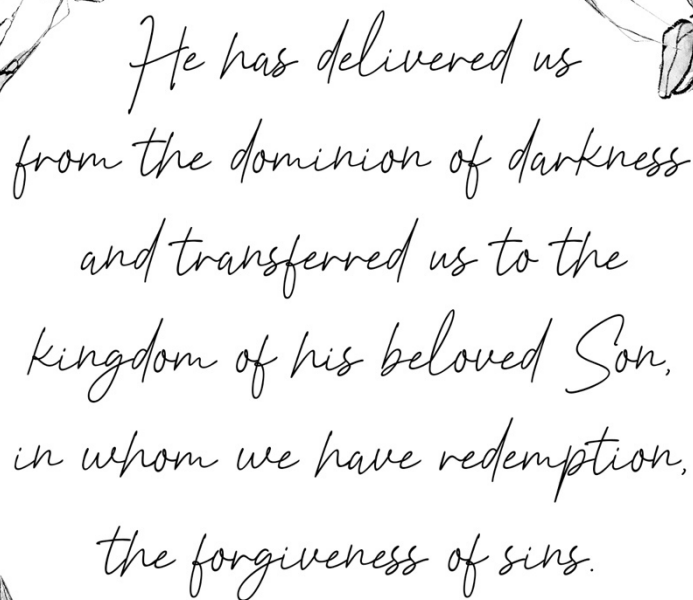 He has delivered us
from the dominion of darkness
and transferred us to the
kingdom of his beloved Son,
in whom we have redemption,
the forgiveness of sins.